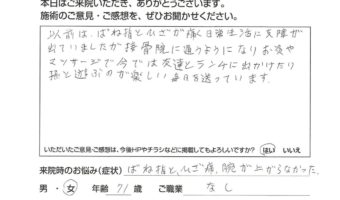 本日はご来院いただき、ありがとうございます。
施術のご意見・ご感想を、ぜひお聞かせください。
以前は、ばね指とひざが痛く日常生活に支障が
出ていましたが接骨院に通うようになりお灸や
マッサージで今では友達とランチに出かけたり
孫と遊ぶのが楽しい毎日を送っています。
いただいたご意見・ご感想は、今後HPやチラシなどに掲載してもよろしいですか? はい いいえ
来院時のお悩み(症状) ばね指と、ひざ痛、腕が上がらなかった
男・女 年齢 71 歳 ご職業 なし